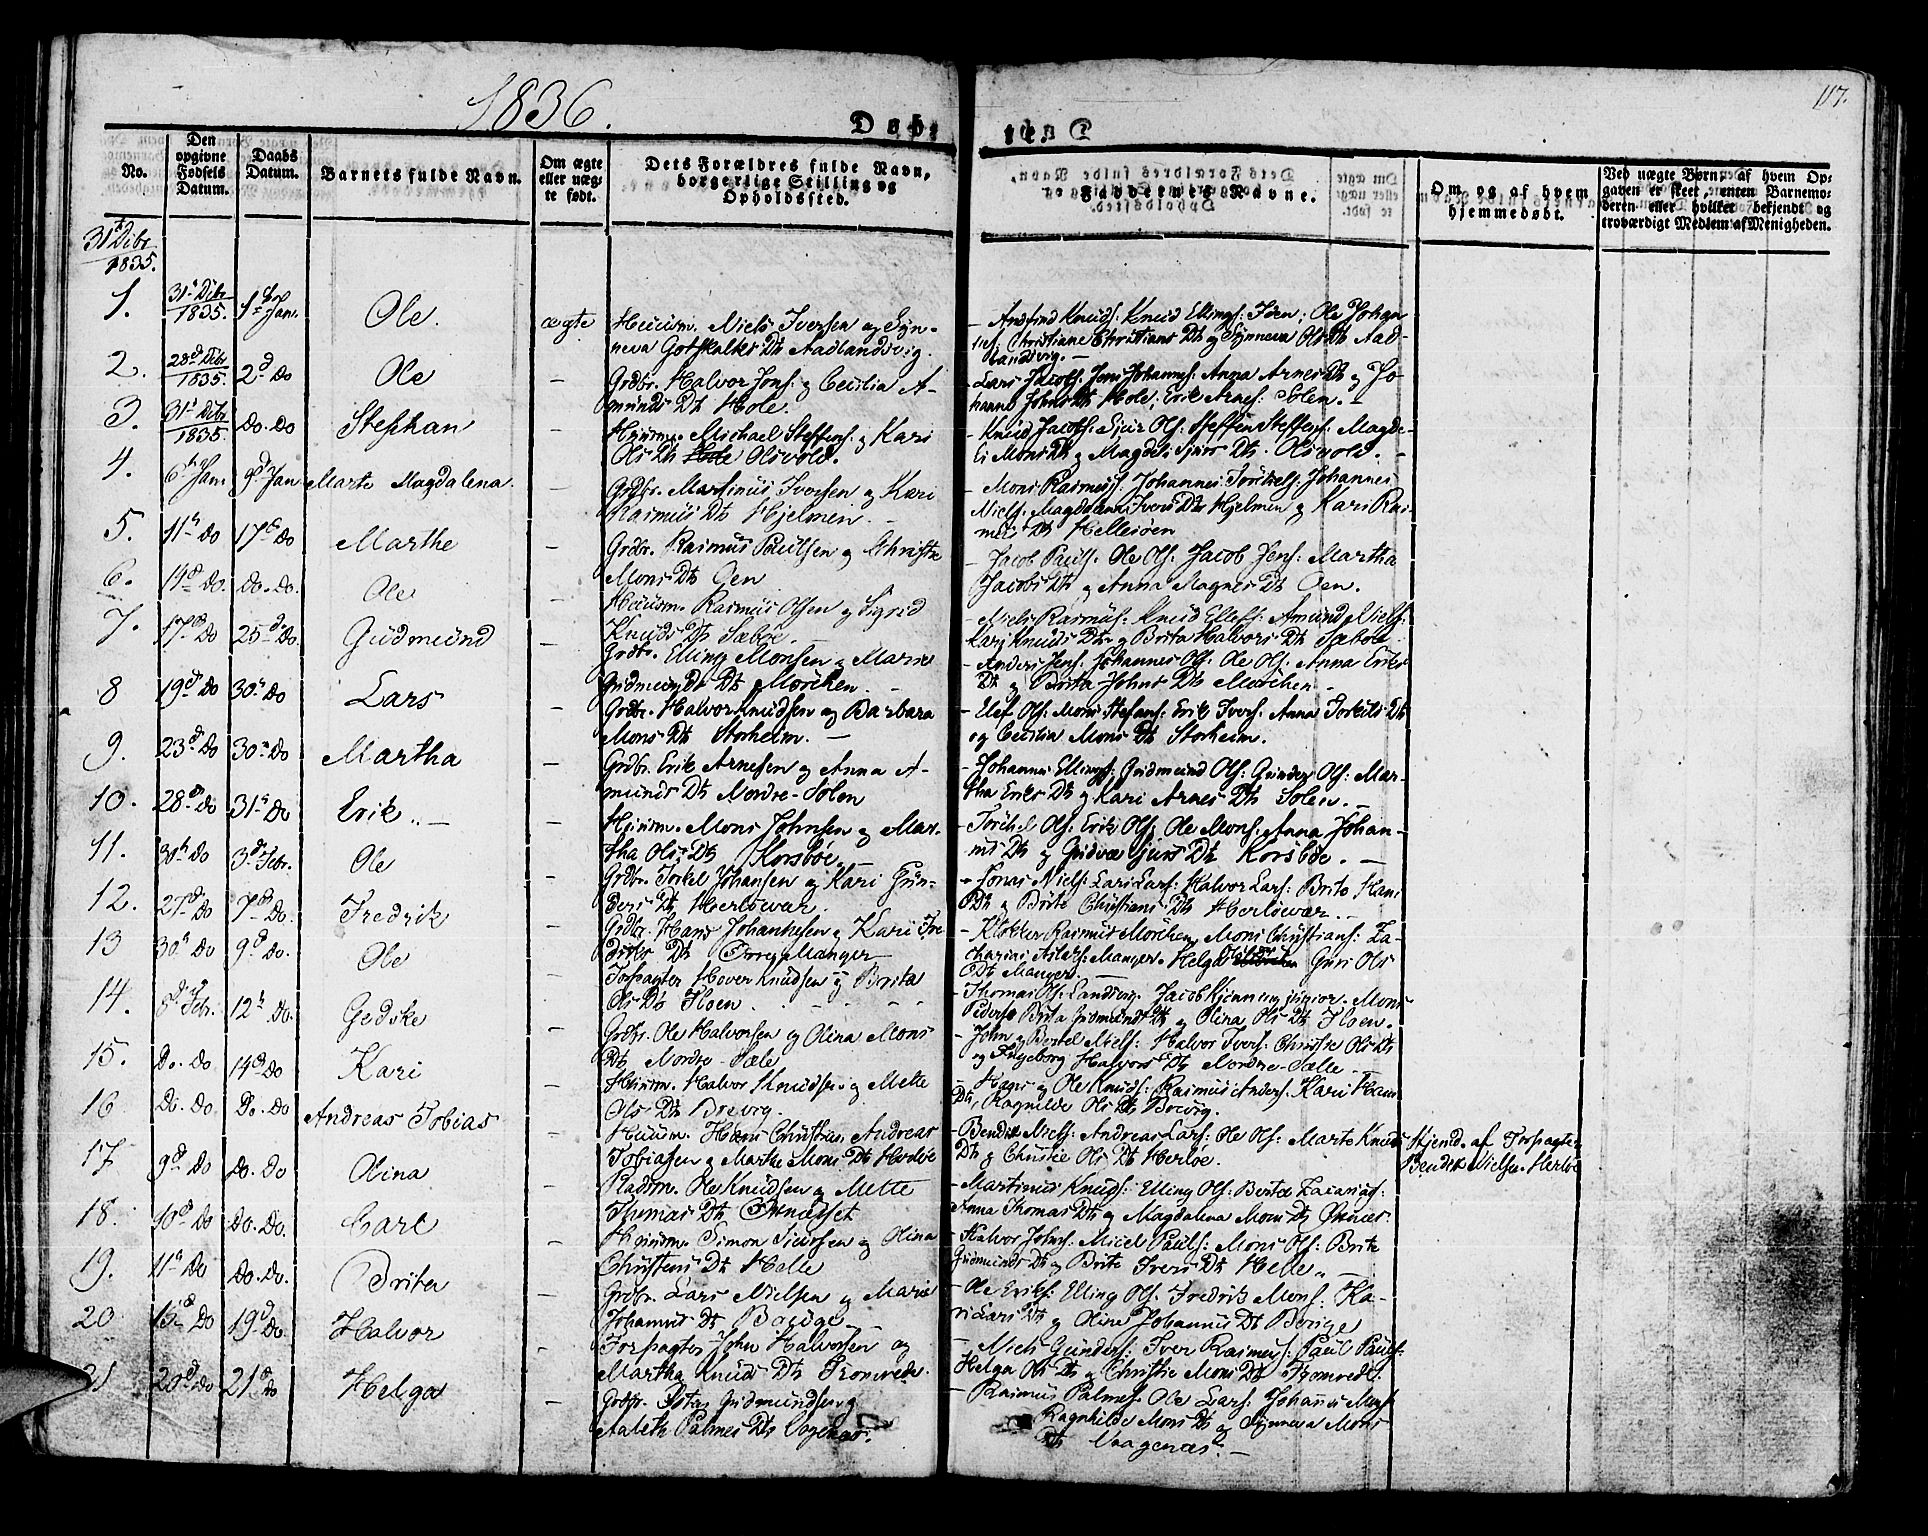 1836.
117.
Døb-
te.
No.
Den opgivne Fødsels Datum.
Daabs Datum.
Barnets fulde Navn.
Om ægte eller uægte født.
Dets Forældres fulde Navn, borgerlige Stilling og Opholdssted.
Faddernes Navne.
Om og af hvem hjemmedøbt.
Ved uægte Børn, af hvem Opgaven er skeet, enten Barnemoderen eller hvilket bekjendt og troværdigt Medlem af Menigheden.
31 Dcbr 1835.
1. 31 Dcbr 1835. 1 Jan. Ole. ægte Huusm. Niels Iversen og Synneva Gotskalks Dt Aadlandsvig.
Knud Ellings: Ole Johannes: Christiane Christians Dt og Synneva Ols Dt Aadlandsvig. —
2. 28d Dcbr 1835. 2d Do Ole — Grdbr. Halvor Jons: og Cecilia Amunds Dt Hole.
— Lars Jacobs: Jens Johanns: Anna Arnes Dt og Johanne Johns Dt Hole, Erik Arnes: Solen. —
3. 31 Dcbr 1835. Do. Do Stephan — Huusm. Michael Steffens: og Kari Ols Dt Olsvold.
— Knud Jacobs: Sjur Ols: Steffen Steffens: Magdeli Mons Dt og Magdeli Sjurs Dt. Olsvold. —
4. 6 Jan. 9d Jan Marte Magdalena — Grdbr. Martinus Iversen og Kari Rasmus Dt Hjelmen. —
— Mons Rasmuss: Johannes Torkels: Johannes Niels: Magdalena Ivers Dt Hjelmen og Kari Rasmus Dt Hellesøen
5. 11 Do 17 Do Marthe — Grdbr. Rasmus Paulsen og Christie Mons Dt Oen
— Jacob Pauls: Ole Ols: Jacob Jens: Martha Jacobs Dt og Anna Magnes Dt Oen.
6. 14 Do. Do. Do. Ole — Huusm. Rasmus Olsen og Sigrid Knuds Dt Sæbøe. —
— Niels Rasmus: Knud Ellefs: Amund Niels: Kari Knuds Dt og Brita Halvors Dt Sæbøe
7. 17 Do 25 Do. Gudmund — Grdbr. Elling Monsen og Marie Gudmunds Dt Mørchen. —
— Anders Jens: Johannes Ols: Ole Ols: Anna Eriks Dt og Brita Johns Dt Mørchen —
8 19 Do 30 Do Lars — Grdbr. Halvor Knudsen og Barbara Mons Dt Storheim. —
— Elef Ols: Mons Stefans: Erik Ivers: Anna Torkils Dt og Cecilia Mons Dt Storheim.
9. 23 Do 30 Do Martha — Grdbr. Erik Arnesen og Anna Amunds Dt Nordre-Solen
— Johannes Ellings: Gudmund Ols: Gunder Ols: Martha Eriks Dt og Kari Arnes Dt Solen. —
10. 28 Do 31 Do Erik.. — — Huusm. Mons Johnsen og Martha Ols Dt Korsbøe. —
— Torkel Ols: Erik Ols: Ole Mons: Anna Johannes Dt og Gudvæ Sjurs Dt Korsbøe. —
11. 30 Do 3d Febr. Ole — Grdbr. Torkel Johansen og Kari Gunders Dt Herløevær.
— Jonas Niels: Lars Lars: Halvor Lars: Brite Hans Dt og Brite Christians Dt Herløevær. —
12. 27 Do 7 Do. Fredrik — Grdbr. Hans Johannesen og Kari Fredriks Dt Manger
— Klokker Rasmus Mørchen, Mons Christians: Zacharias Manger. Helga Guri Ols Dt Manger.
13 30 Do 9d Do. Ole — Forpagter Haver Knudsen og Brita Ols Dt Floen.
— Thomas Ols: Landsvig. Jacob Kjenning junior. Mons Peders: Brita Gudmunds Dt og Olina Ols Dt Floen.
14. 8 Febr. 12 Do. Gedske — Grdbr. Ole Halvorsen og Olina Mons Dt Nordre-Sæle
— John og Bertel Niels: Halvor Ivers: Christie Ols Dt og Ingeborg Halvors Dt Nordre-Sælle —
15. Do. Do 14 Do Kari — Huusm. Halvor Knudsen og Mette Ols Dt Brevig.
— og Ole Knuds: Rasmus Anders: Kari Hans Dt, Ragnilde Ols Dt Brevig.
16 Do. Do Do. Do Andreas Tobias — Huusm. Hans Christian Andreas Tobiasen og Marthe Mons Dt Herløe
— Bendik Niels: Andreas Lars: Ole Ols: Marte Knuds Dt og Christie Ols Dt Herløe.
Hjemd. af Forpagter Bendik Nielsen Herløe
17 9d Do Do. Do Olina — Radm. Ole Knudsen og Mette Thomas Dt
— Martinus Knuds: Elling Ols: Bertel Zacarias: Anna Thomas Dt og Magdalena Mons Dt
18. 10d Do Do. Do. Carl — Huusm. Simon Siursen og Olina Christens Dt Helle
— Halvor Johns: Micel Pauls: Mons Ols: Brite Gudmunds Dt og Brite Ivers Dt Helle. —
19. 11 Do Do. Do. Brita — Grdbr. Lars Nielsen og Marie Johannes Dt Bauge
— Ole Eriks: Elling Ols: Fredrik Mons: Kari Lars Dt og Oline Johannes Dt Bøuge
20 Do 19d Do. Halvor — Forpagter John Halvorsen og Martha Knuds Dt Fromrede.
— Niels Gunders: Iver Rasmus: Paul Pauls: Helga Ols Dt og Christie Mons Dt Fromrede.
21 20d Do 21d Do Helga — Grdbr. Gudmundsen og Aaleth Palmes Dt Vogenæs.
— Rasmus Palmes: Ole Lars: Johannes Mons: Ragnhilde Mons Dt og Synneva Mons Dt Vaagenæs. —